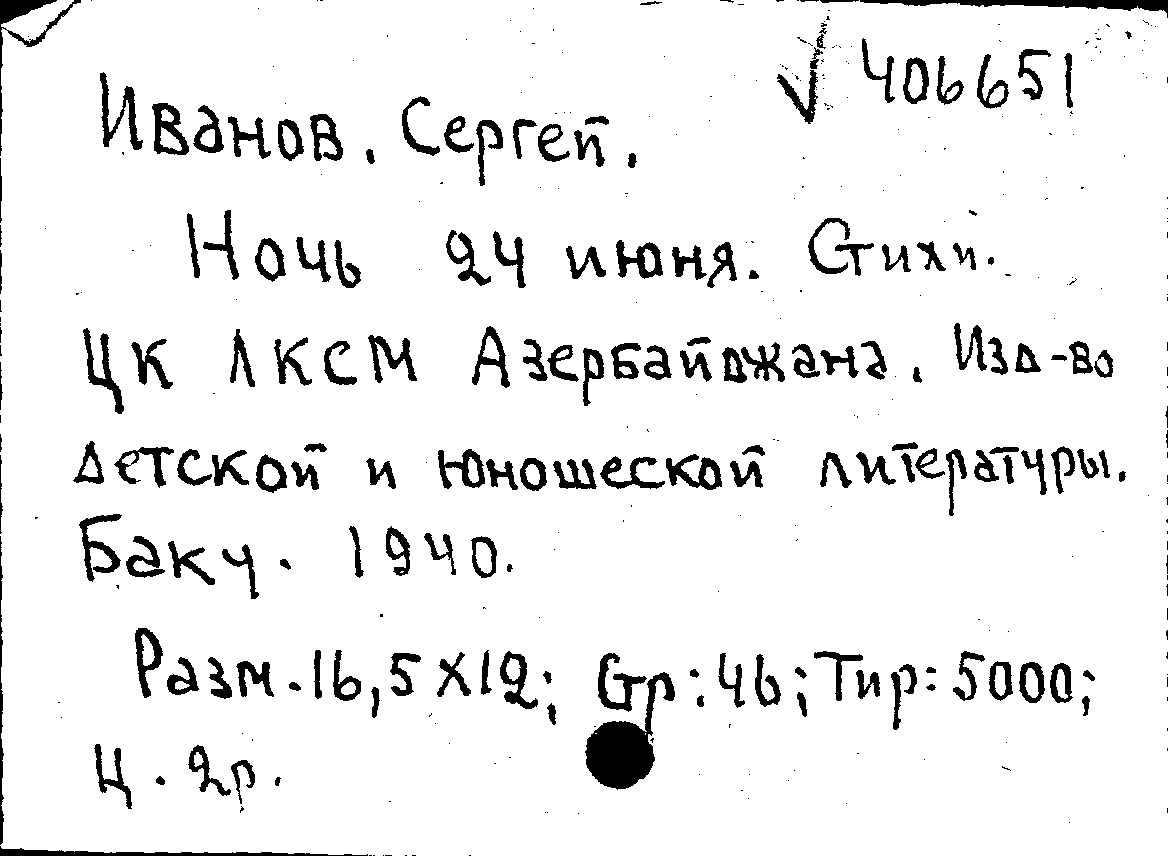 √ 406651
Иванов. Сергей.
Ночь 24 июня. Стихи.
ЦК ЛКСМ Азербайджана. Изд-во
детской и юношеской литературы.
Баку. 1940.
Разм. 16,5х12; Стр: 46; Тир: 5000;
Ц. 2р.